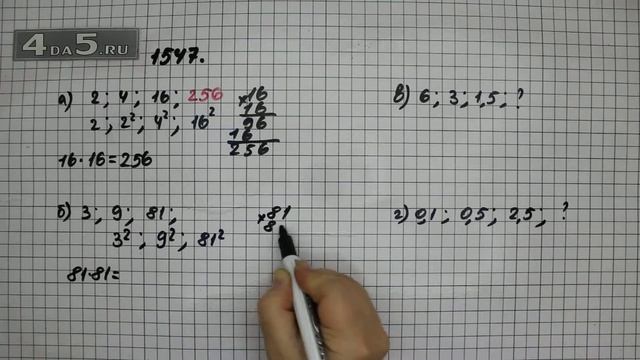 4DA5.RU
1547.
а) 2; 4; 16; 256
2; 2²; 4²; 16²
16·16=256
×16
16
96
16
256
б) 3; 9; 81;
3²; 9²; 81²
81·81=
×81
8
в) 6; 3; 1,5; ?
г) 0,1; 0,5; 2,5; ?